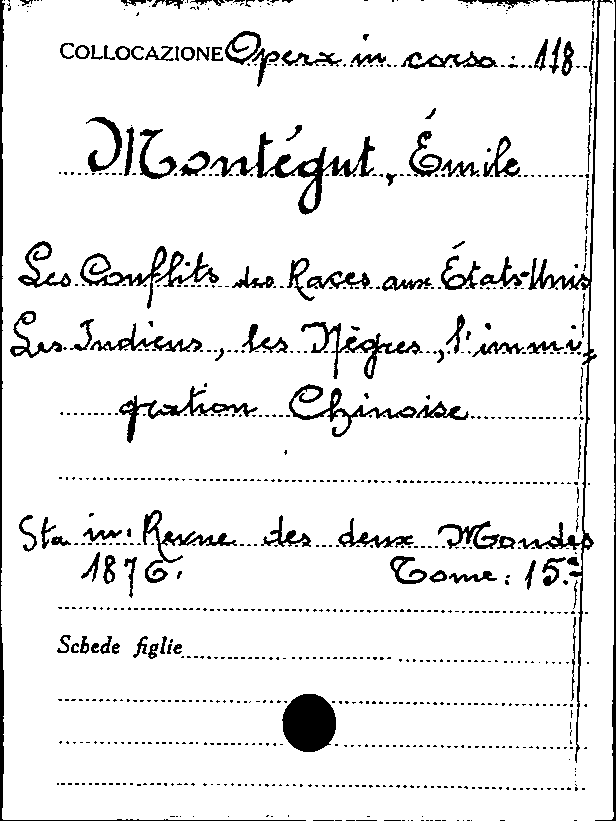 COLLOCAZIONE Opera in corso: 118
Montégut, Émile
Les Conflits des Races aux États-Unis
Les Indiens, les Nègres, l'immi-
gration Chinoise
Sta in: Revue des deux Mondes
1876. Tome: 15.e
Schede figlie